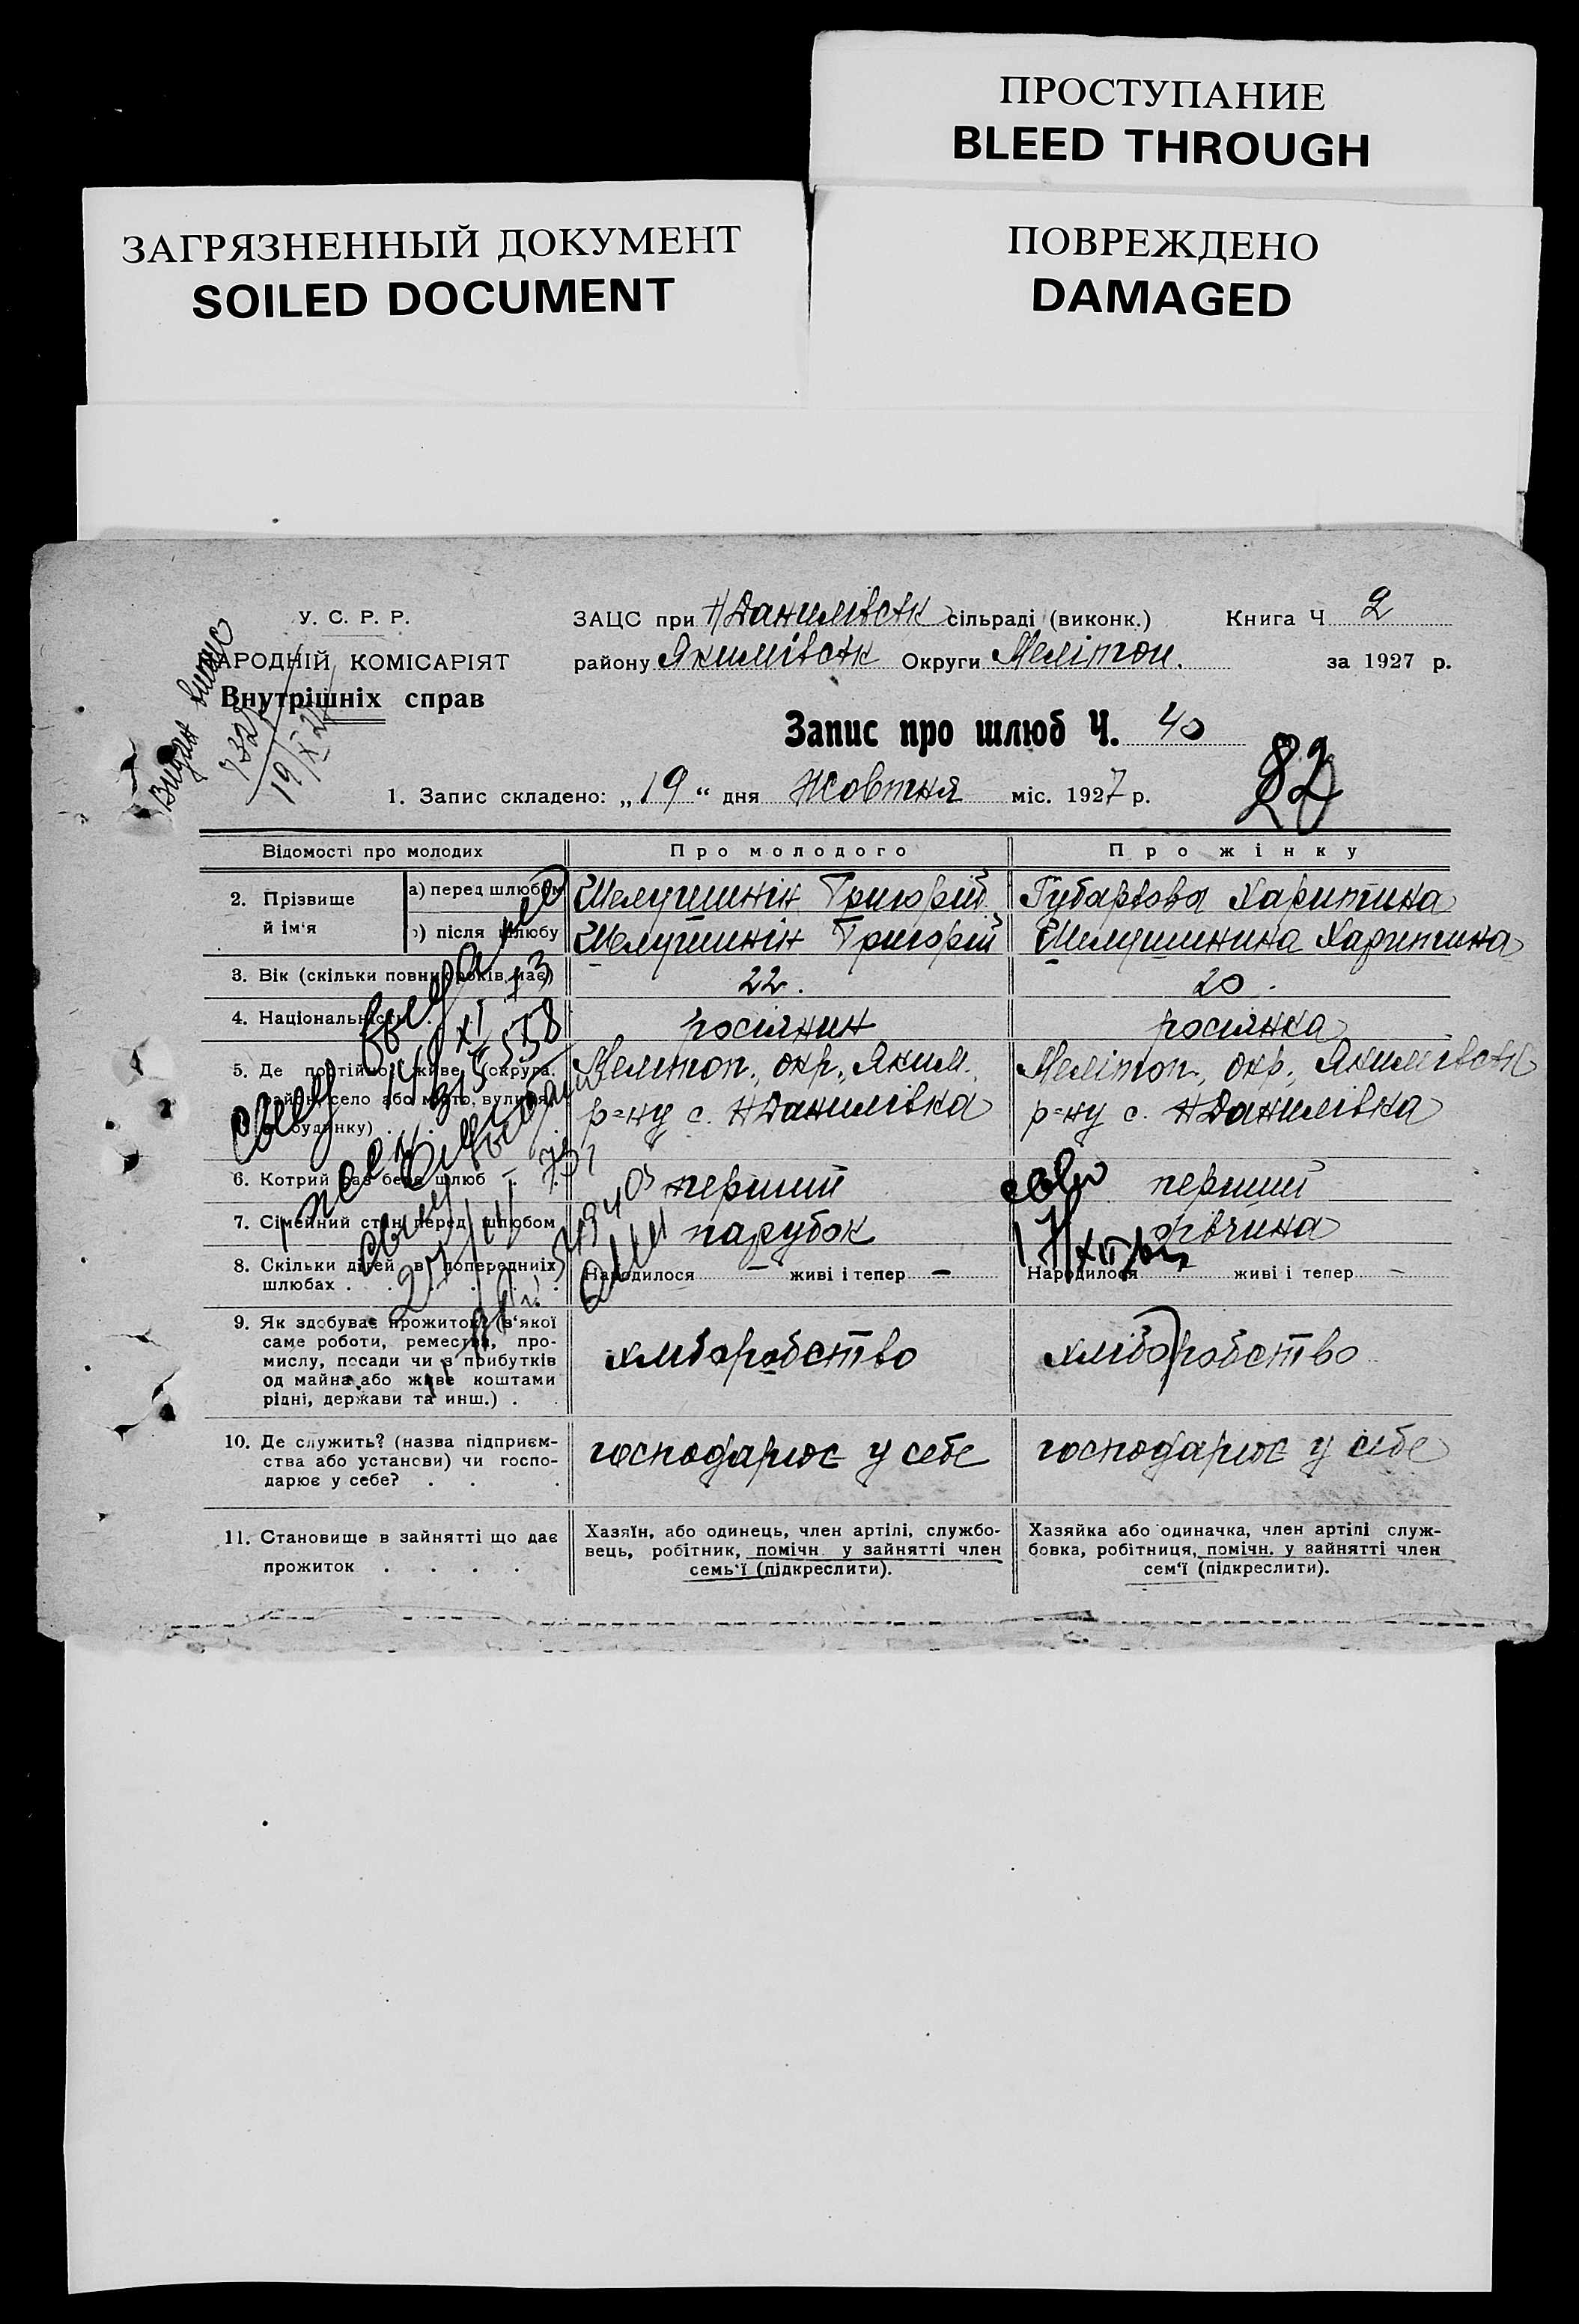 ПРОСТУПАНИЕ
BLEED THROUGH
ЗАГРЯЗНЕННЫЙ ДОКУМЕНТ
SOILED DOCUMENT
ПОВРЕЖДЕНО
DAMAGED
У. С. Р. Р.
АРОДНІЙ КОМІСАРІЯТ
Внутрішніх справ
ЗАЦС при Н/Данилівськ сільраді (виконк.) Книга Ч 2
району Якимівськ Округи Мелітоп. за 1927 р.
Видан випис
19/X 27
Запис про шлюб Ч. 40
82
1. Запис складено: „19“ дня Жовтня міс. 1927 р.
Відомості про молодих Про молодого Про жінку
2. Прізвище й ім‘я
а) перед шлюбом Шелушинін Григорій Губарьова Харитина
після шлюбу Шелушинін Григорій Шелушинина Харитина
3. Вік (скільки повних років має) 22. 20.
4. Національність росіянин росіянка
5. Де постійно живе (округа, район, село або місто, вулиця, будинку)
Мелітоп., окр., Яким. р=ну с. Н Данилівка
Мелітоп., окр., Якимівськ р=ну с. Н Данилівка
6. Котрий раз бере шлюб перший перший
7. Сімейний стан перед шлюбом парубок дівчина
8. Скільки дітей в попередніх шлюбах
Народилося — живі і тепер —
Народилося живі і тепер —
9. Як здобуває прожиток? (з‘якої
саме роботи, ремества, про-
мислу, посади чи з прибутків
од майна або живе коштами
рідні, держави та инш.)
хліборобство хліборобство
10. Де служить? (назва підприєм-
ства або установи) чи госпо-
дарює у себе?
господарює у себе господарює у себе
11. Становище в зайнятті що дає
прожиток
Хазяїн, або одинець, член артілі, службо-
вець, робітник, помічн. у зайнятті член
семь‘ї (підкреслити).
Хазяйка або одиначка, член артілі служ-
бовка, робітниця, помічн. у зайнятті член
сем‘ї (підкреслити).